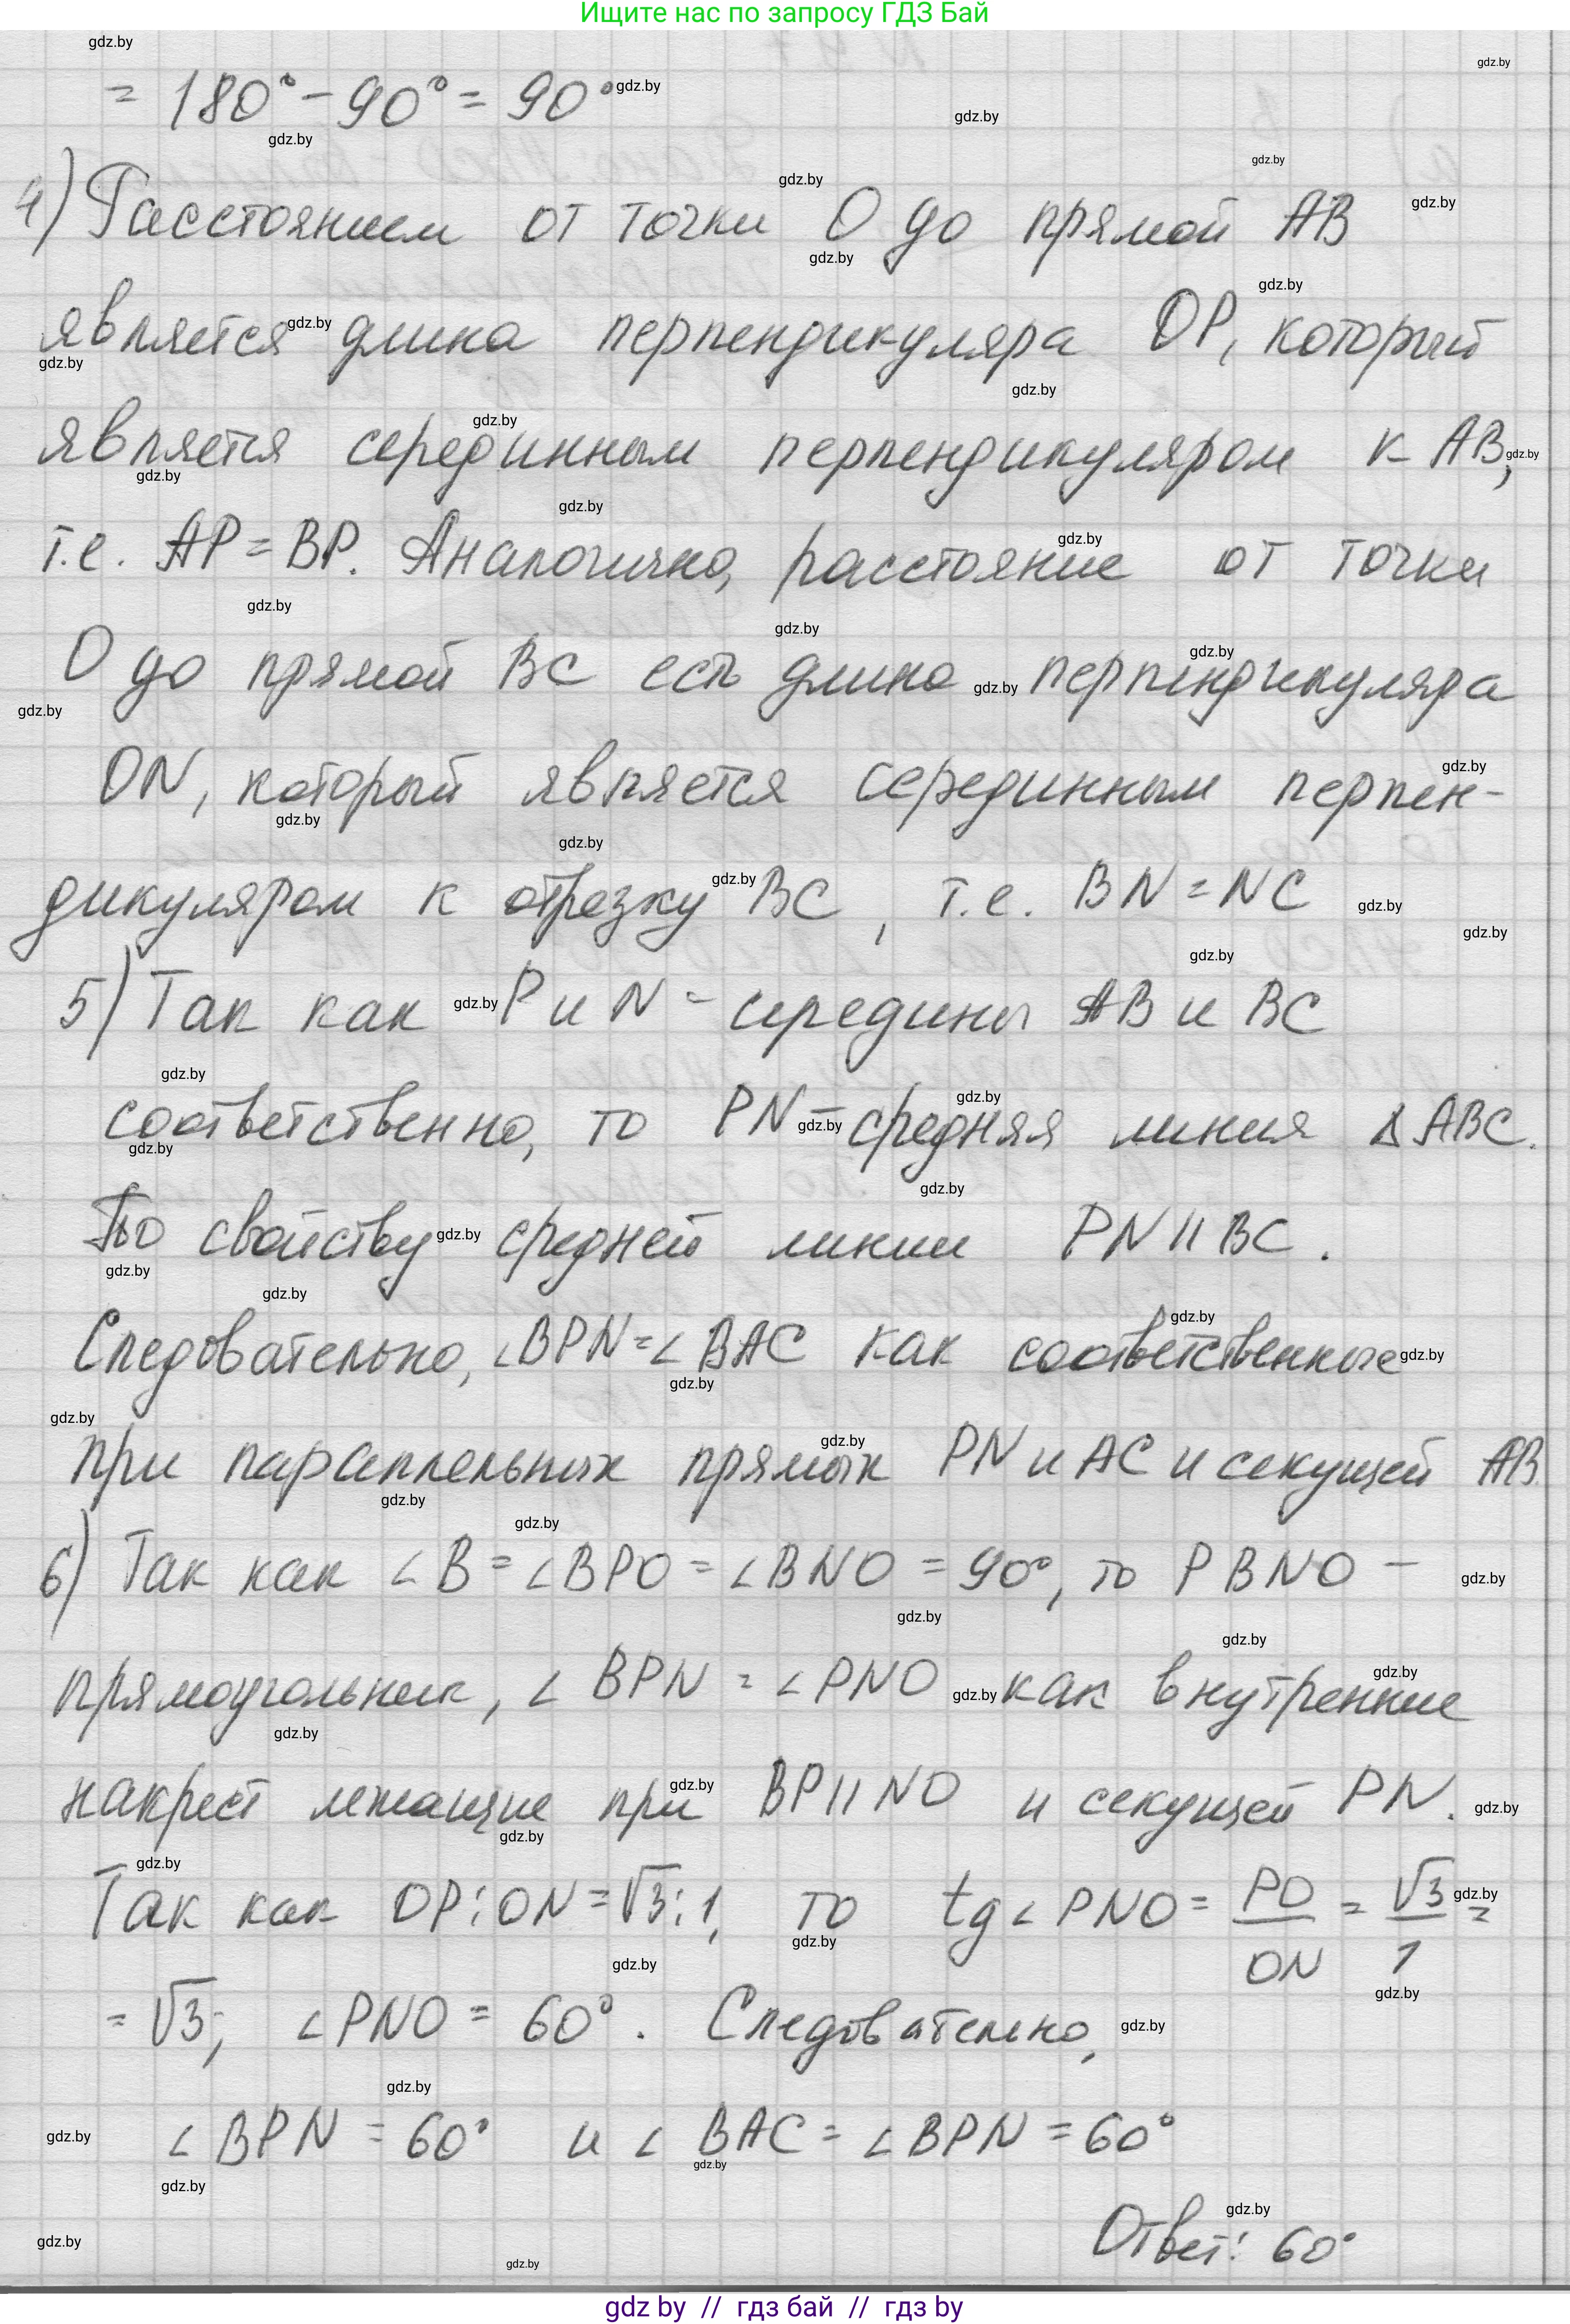 Ищите нас по запросу ГДЗ Бай
= 180° - 90° = 90°
4) Расстоянием от точки O до прямой AB
является длина перпендикуляра OP, который
является серединным перпендикуляром к AB,
т.е. AP = BP. Аналогично, расстояние от точки
O до прямой BC есть длина перпендикуляра
ON, который является серединным перпен-
дикуляром к отрезку BC, т.е. BN = NC
5) Так как P и N - середины AB и BC
соответственно, то PN - средняя линия ΔABC.
По свойству средней линии PN || BC.
Следовательно, ∠BPN = ∠BAC как соответственные
при параллельных прямых PN и AC и секущей AB.
6) Так как ∠B = ∠BPO = ∠BNO = 90°, то PBNO -
прямоугольник, ∠BPN = ∠PNO как внутренние
накрест лежащие при BP || NO и секущей PN.
Так как OP : ON = √3 : 1, то tg∠PNO = PO/ON = √3/1 =
= √3; ∠PNO = 60°. Следовательно,
∠BPN = 60° и ∠BAC = ∠BPN = 60°
Ответ: 60°
gdz by // гдз бай // гдз by